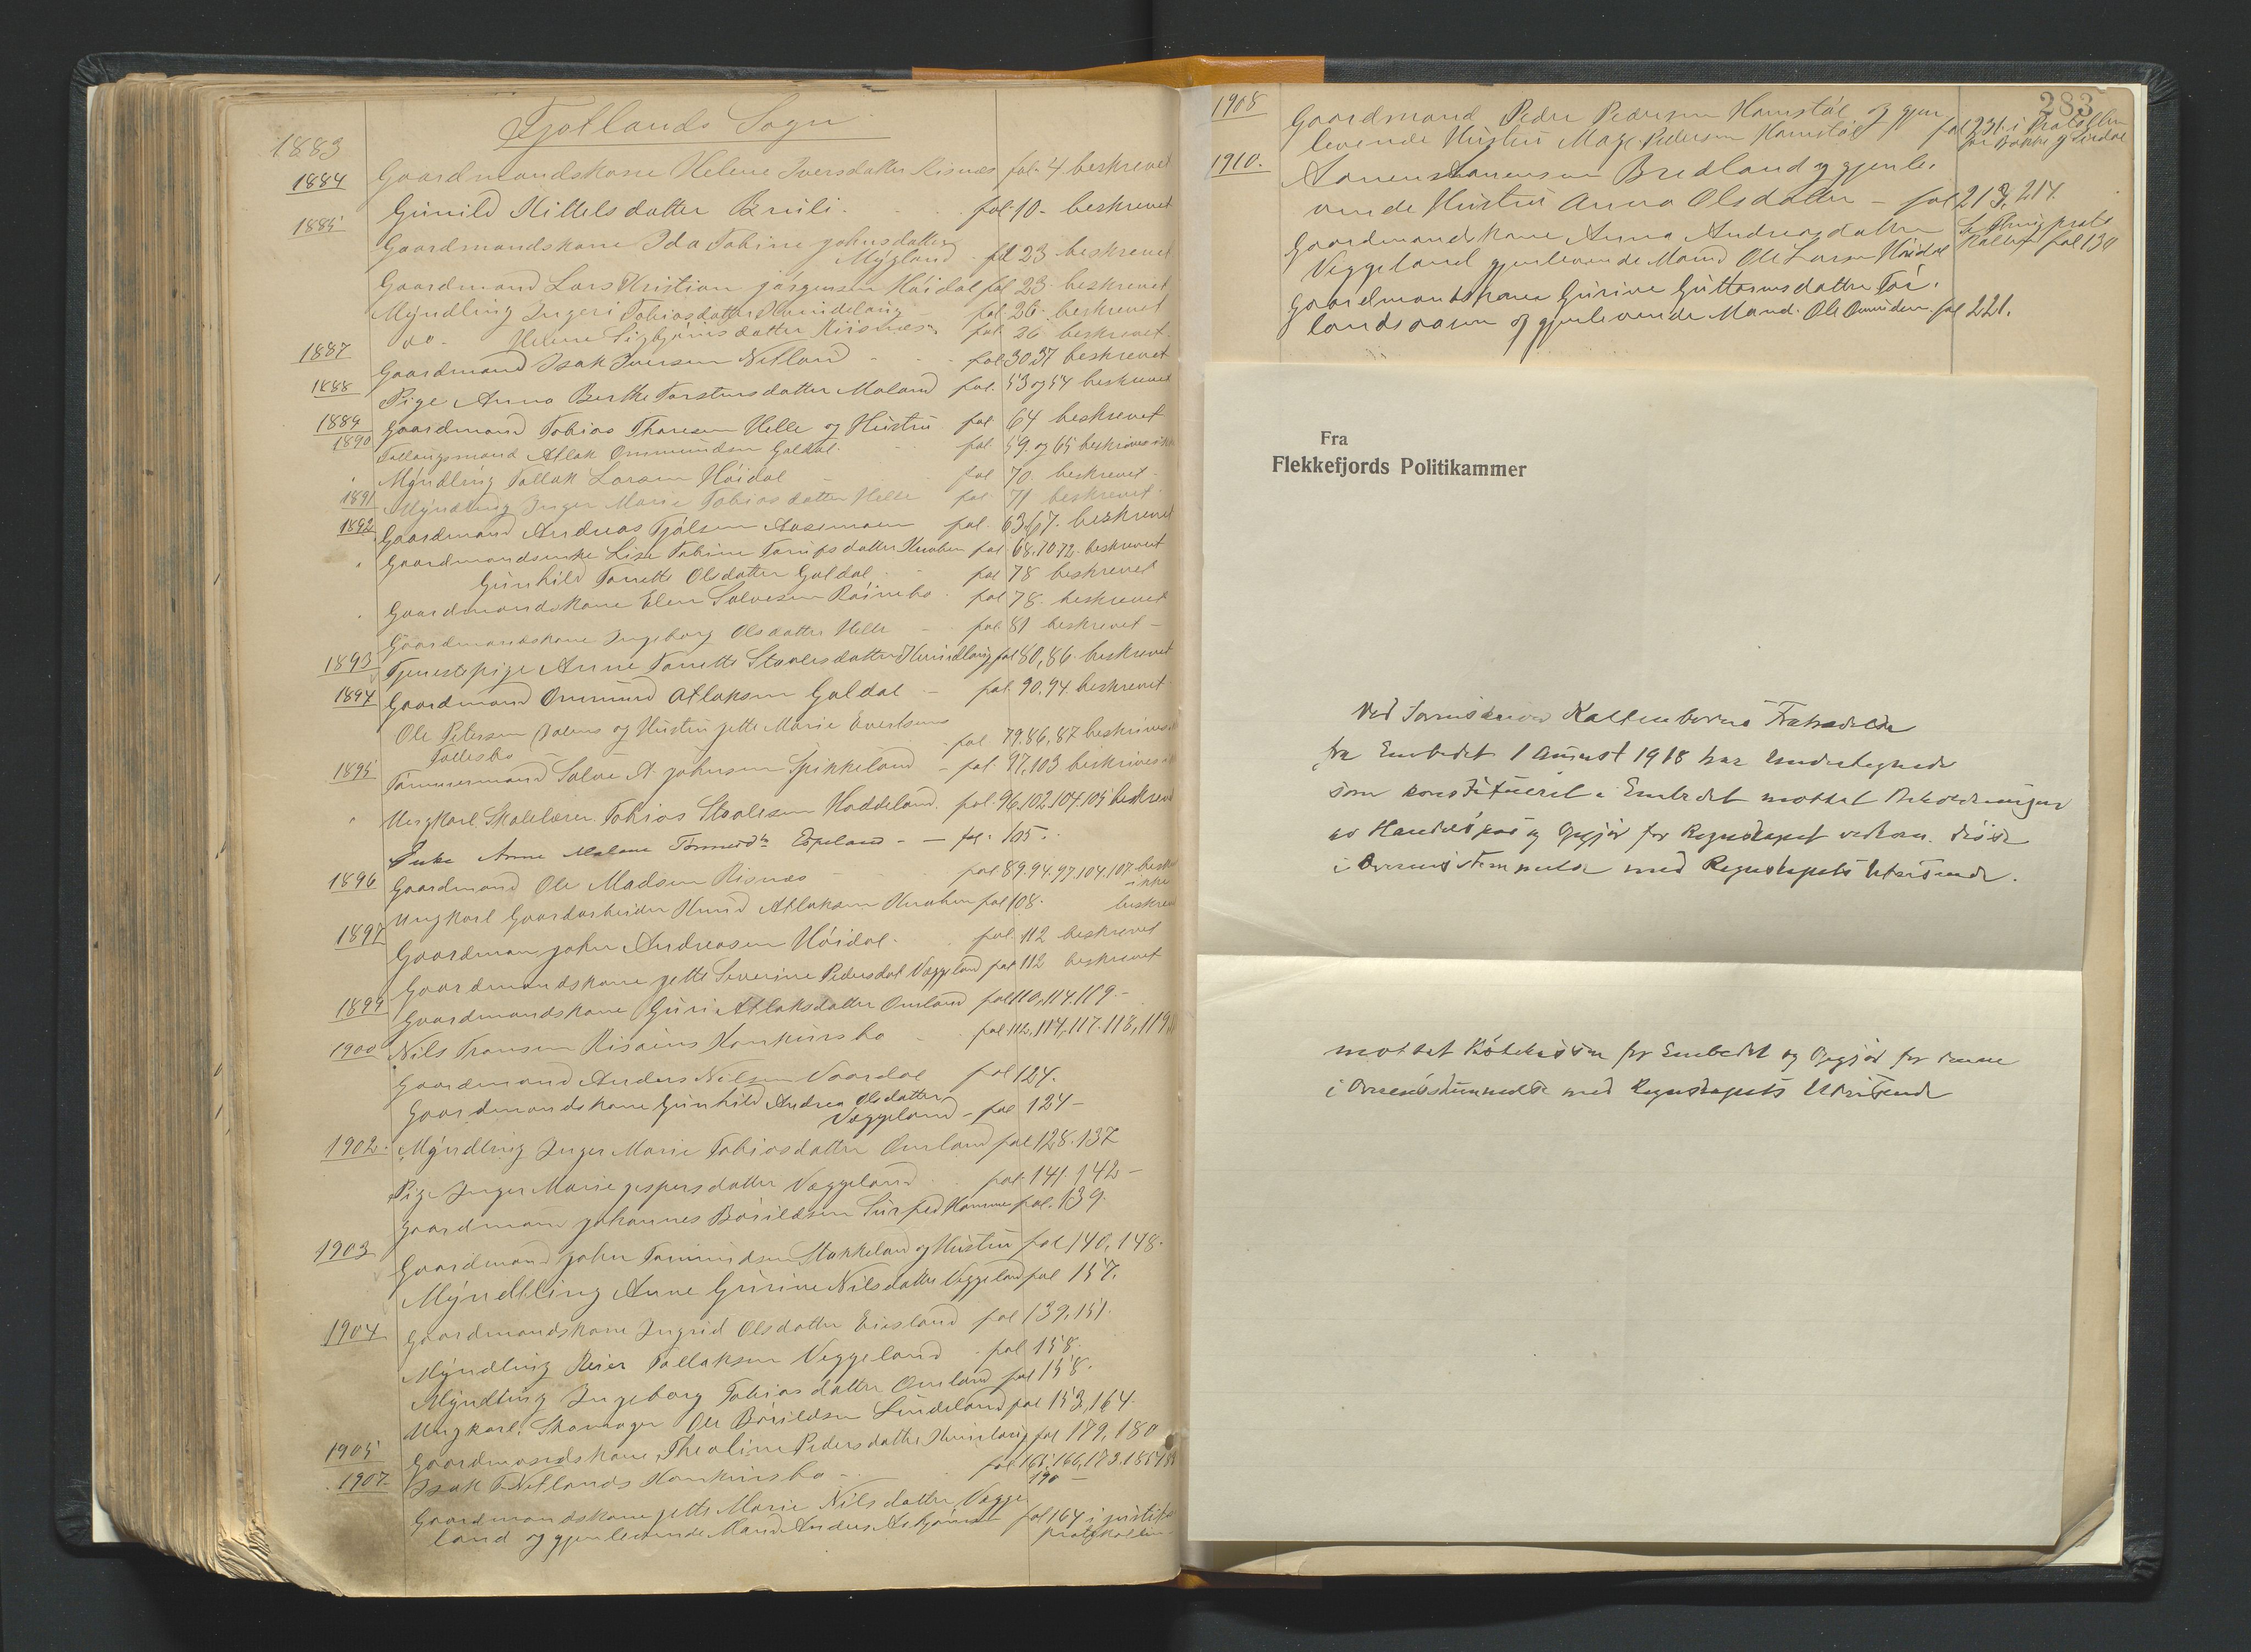 Fjotlands Sogn
1883
1884 Gaardmandskone Helene Iversdatter Risnæs fol. 4 beskrevet
Gunild Kittelsdatter Bruli fol. 10 - beskrevet
1885 Gaardmandskone Ida Tobine Johnsdatter
Mygland fol 23 beskrevet
Gaardmand Lars Kristian Jørgensen Høidal fol 23 beskrevet
Myndling Ingeri Tobiasdatter fol. 26 beskrevet
do - Helene Sigbjørnsdatter Risnæs fol. 26 beskrevet
1887 Gaardmand Isak Iversen Netland - - - fol. 30 37 beskrevet
1888 Pige Anna Berthe Torstensdatter Moland fol. 53 og 54 beskrevet
1889 Gaardmand Tobias Thoresen Helle og Hustru fol. 64 beskrevet
1890 Atlak Ommundsen Galdal. fol. 59 og 65
Myndling Tallak Larsen Høidal fol 70. beskrevet
1891 Myndling Inger Marie Tobiasdatter Helle fol. 71 beskrevet
1892 Gaardmand Andreas fol. 63, 67. beskrevet
Gaardmandsenke Lise Tobine fol 68, 70 72. beskrevet
Gunhild Tonette Olsdatter Galdal fol 78 beskrevet
Gaardmandskone Elen Salvesen fol 78. beskrevet
Gaardmandskone Ingeborg Olsdatter Helle - fol. 81 beskrevet -
1893 Tjenestepige Anne Tonette Staalesdatter fol 80, 86. beskrevet
1894 Gaardmand Ommund Atlaksen Galdal - fol. 90. 94 beskrevet
Ole Petersen og Hustru Jette Marie Evertsens
Fællesbo fol 79. 86, 87
1895 Tømmermand Salve A. Johnsen Spikkeland - fol. 97, 103
Ungkarl, Skolelærer Tobias Staalesen Haddeland. fol. 96, 102, 104. 105
Enke Anne Malene Espeland - - fol. 105.
1896 Gaardmand Ole Madsen Risnæs fol 89. 94. 97. 104. 107.
Ungkarl Gaardarbeider Knud Atlaksen fol 108.
1897 Gaardman John Andreasen Høidal. fol. 112 beskrevet
Gaardmandskone Jette Severine Pedersdat Veggeland fol. 112 beskrevet
1899 Gaardmandskone Guri Atlaksdatter Omland fol 110, 114. 119. -
1900 Nils Konkursbo fol. 112, 114, 117. 118, 119
Gaardmand Anders Nilsen Vaardal fol 124.
Gaardmandskone Gunhild Andrea Olsdatter
Veggeland - fol 124 -
1902. Myndling Inger Marie Tobiasdatter Omland fol 128. 137
Pige Inger Marie Jespersdatter Veggeland fol. 141. 142 -
Gaardmand Johannes Bårildsen fol. 139.
1903 Gaardmand John Stakkeland og Hustru fol 140, 148.
Myndling Anne Gurine Nilsdatter Veggeland fol 157.
1904 Gaardmandskone Ingrid Olsdatter Eiesland fol 139, 151.
Myndling Reier Tallaksen Veggeland fol 158.
Myndling Ingeborg Tobiasdatter Omland fol 158.
Ungkarl, Skomager Ole Bårildsen Lindeland fol 153, 164.
1905 Gaardmandskone Theoline Pedersdatter fol 179, 180
1907. Isak Netlands Konkursbo - fol 165, 166, 173, 185
190 -
Gaardmandskone Jette Marie Nilsdatter Vegge
land og gjenlevende Mand Anders fol 164 i justits
protokollen
283
1908 Gaardmand Peder Pedersen Hamstøl og gjen
levende Hustru Pedersen Hamstøl fol 231. i Protokollen
for Bakke og Sirdal
1910. Bredland og gjenle-
vende Hustru Anna Olsdatter - fol 213, 214.
Gaardmandskone Anna Andreasdatter
Veggeland gjenlevende Mand Ole Larsen Høidal fol 130
Gaardmandskone Gurine Guttormsdatter
og gjenlevende Mand. Ole fol 221.
Fra
Flekkefjords Politikammer
Ved Sorenskriver Kaltenborns Fratrædelse
fra Embedet 1 August 1918 har Undertegnede
som konstitueret i Embedet mottat Beholdningen
av og Opgjør for Regnskapet vedkom.
i Overensstemmelse med Regnskapets Utvisende.
mottat for Embedet og Opgjør for denne
i Overensstemmelse med Regnskapets Utvisende